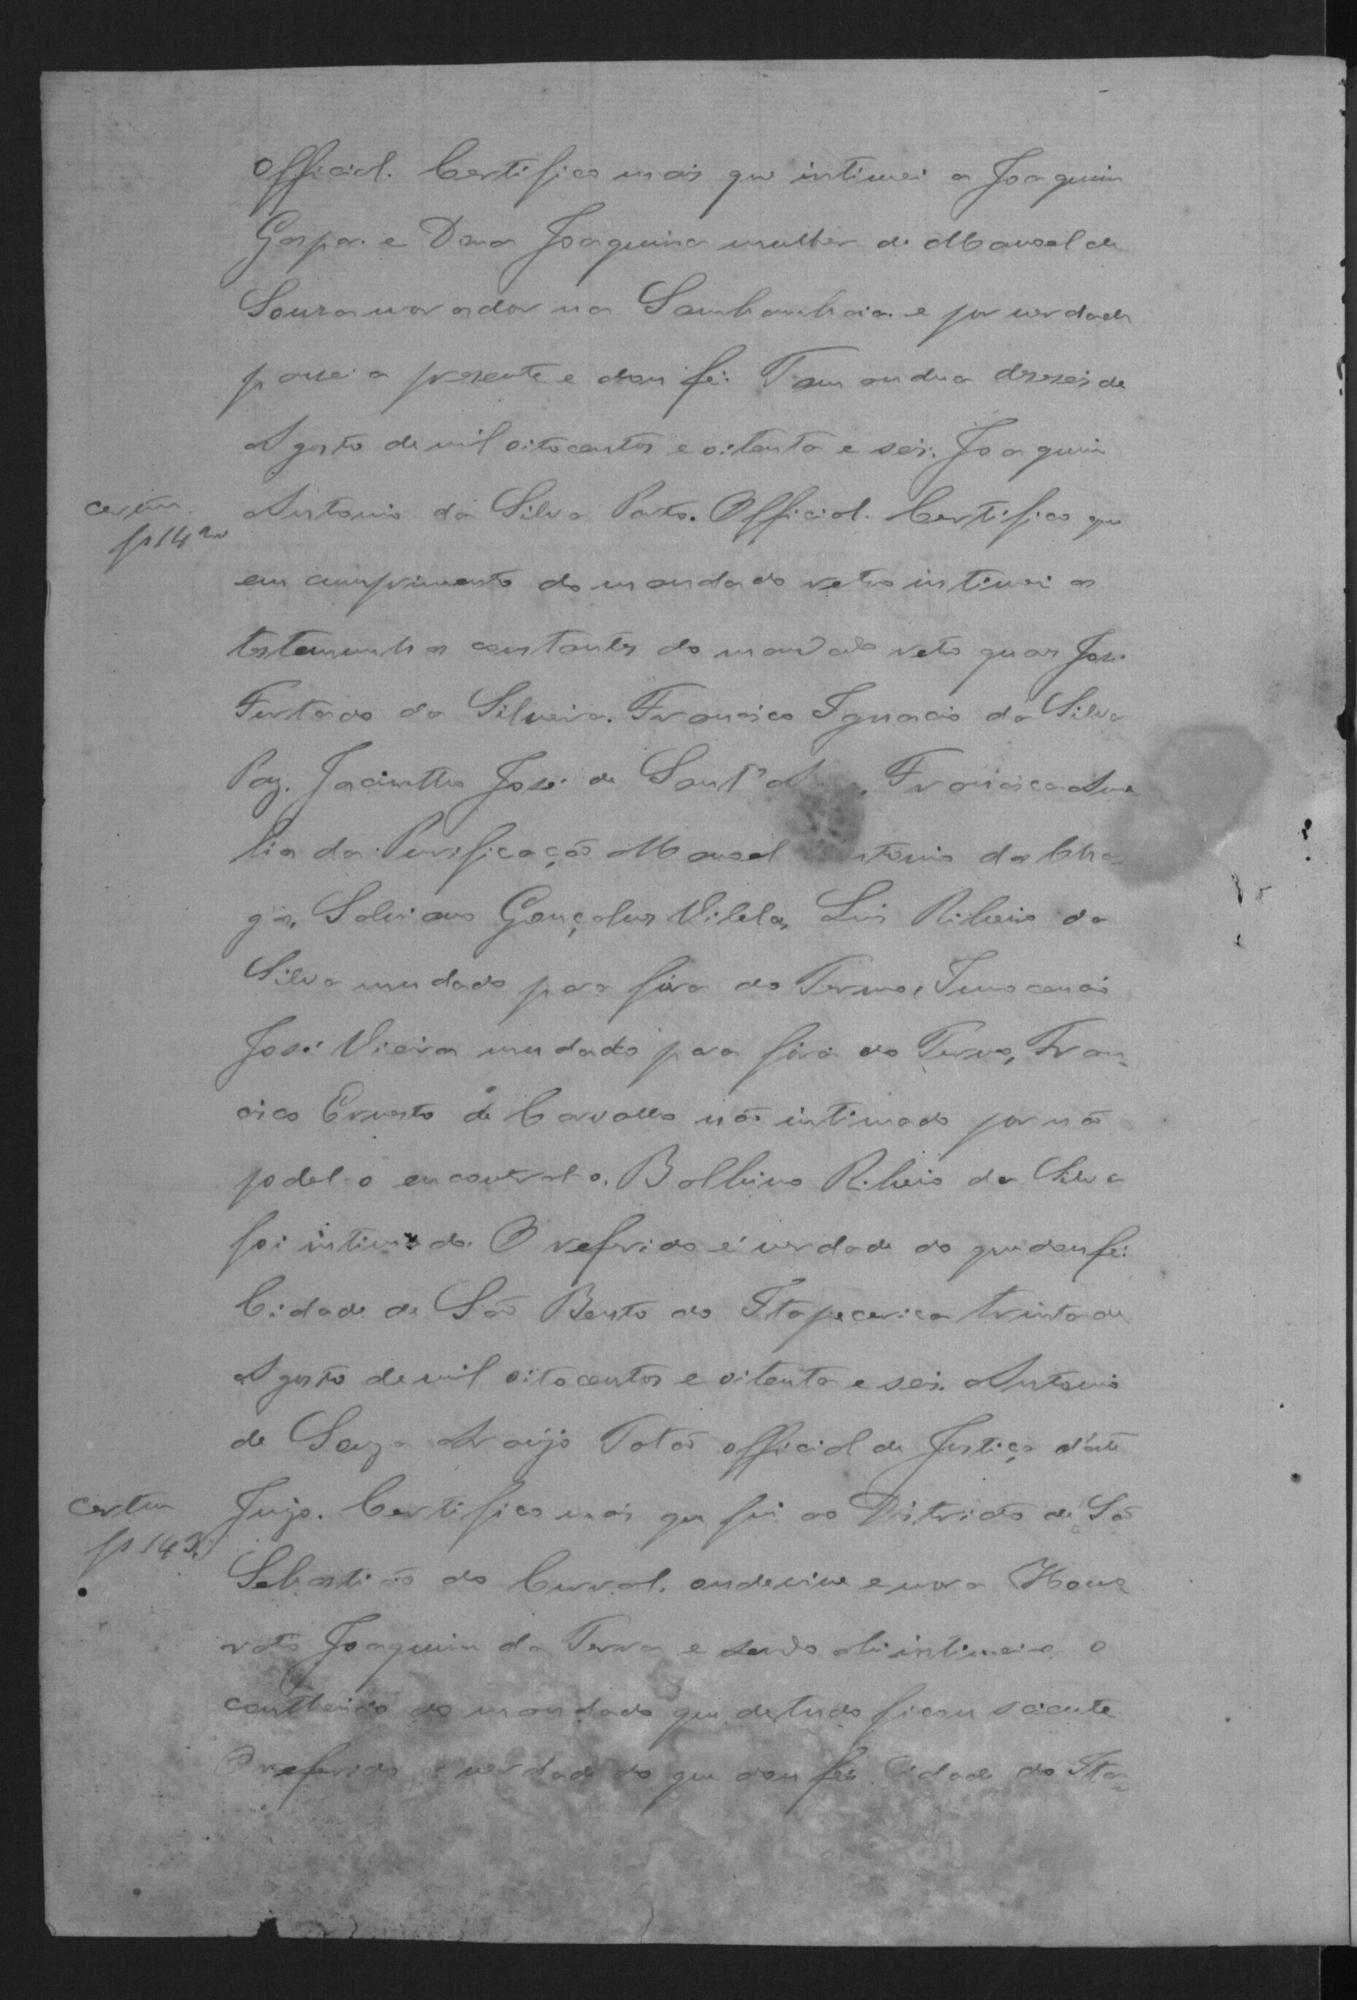 Official. Certifico mais que intimei a Joaquim
Gaspar e Dona Joaquina mulher de Manoel de
Souza morador na Samhambaia e por verdade
passei a presente e dou fé. Tamandua deseseis de
Agosto de mil oitocentos e oitenta e seis. Joaquim
certam. Antonio da Silva Porto. Official. Certifico que
fs 142v
em cumprimento do mandado retro intimei as
testemunhas constantes do mandado retro quaes José
Furtado da Silveira. Francisco Ignacio da Silva
Paz. Jacintho José de Sant'A . Francisca Ame
lia da Purificação Manoel Antonio das Cha
gas, Salviano Gonçalves Vilela, Luis Ribeiro da
Silva mudado para fóra do Termo, Innocencio
José Vieira mudado para fóra do Termo, Fran-
cisco Ernesto de Carvalho não intimado por não
podel-o encontral-o. Balbino Ribeiro da Silva
foi intimado. O referido é verdade do que dou fé.
Cidade de São Bento do Itapecerica trinta de
Agosto de mil oitocentos e oitenta e seis. Antonio
de Souza Araujo Totós official de Justiça d'este
certam Juizo. Certifico mais que fui ao Districto de São
fs 143
Sebastião do Curral. onde vive e mora Hono
rato Joaquim da Terra e sendo ahi intimei-o o
contheudo do mandado que de tudo ficou sciente.
O referido é verdade do que dou fé. Cidade do Ita-